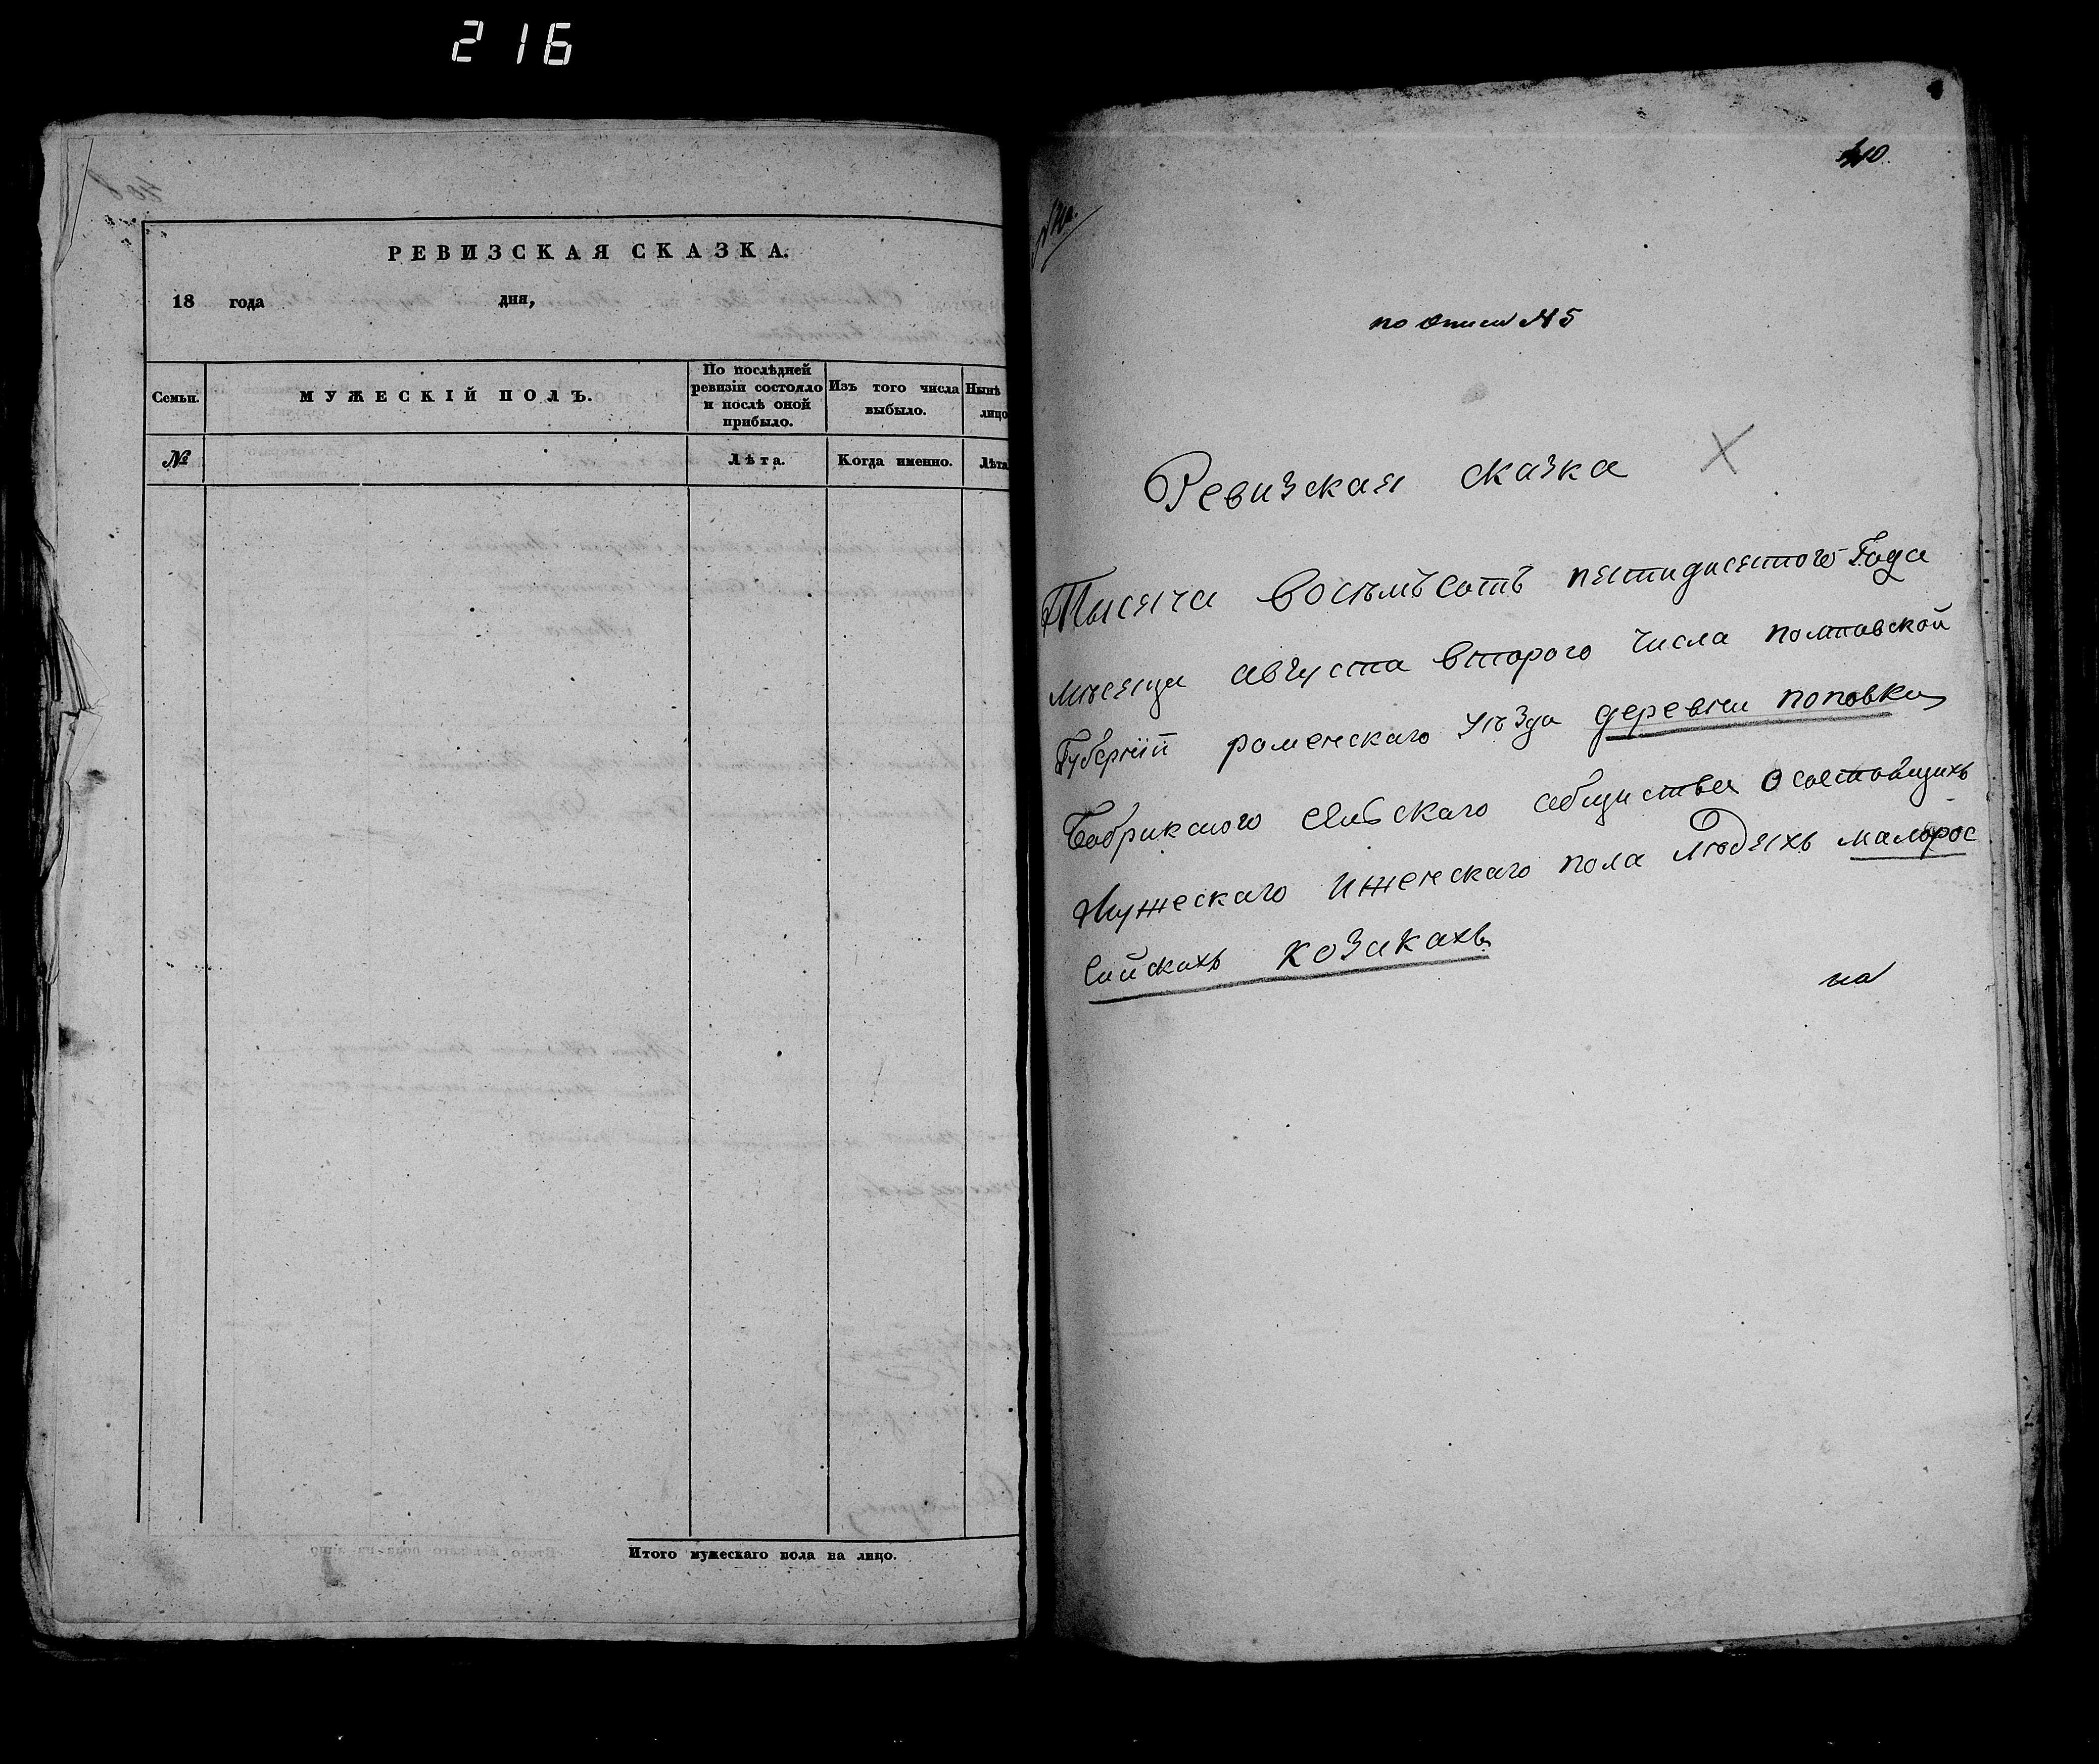 216
РЕВИЗСКАЯ СКАЗКА.
18 года дня,
Семьи.
МУЖЕСКІЙ ПОЛЪ.
По послѣдней
ревизіи состояло
и послѣ оной
прибыло.
Изъ того числа
выбыло.
Нынѣ
лицо
№
Лѣта.
Когда именно.
Лѣта
Итого мужескаго пола на лицо.
410.
по описи № 5
Ревизская сказка
Тысяча восѣмъсотъ пятидисятого Года
мѣсяца августа второго числа полтавской
Губерніи роменскаго уѣзда деревни поповки
Бобрикского сельскаго общества о состоящихъ
Мужескаго и женскаго пола людяхъ малорос
сийскихъ козакахъ
на